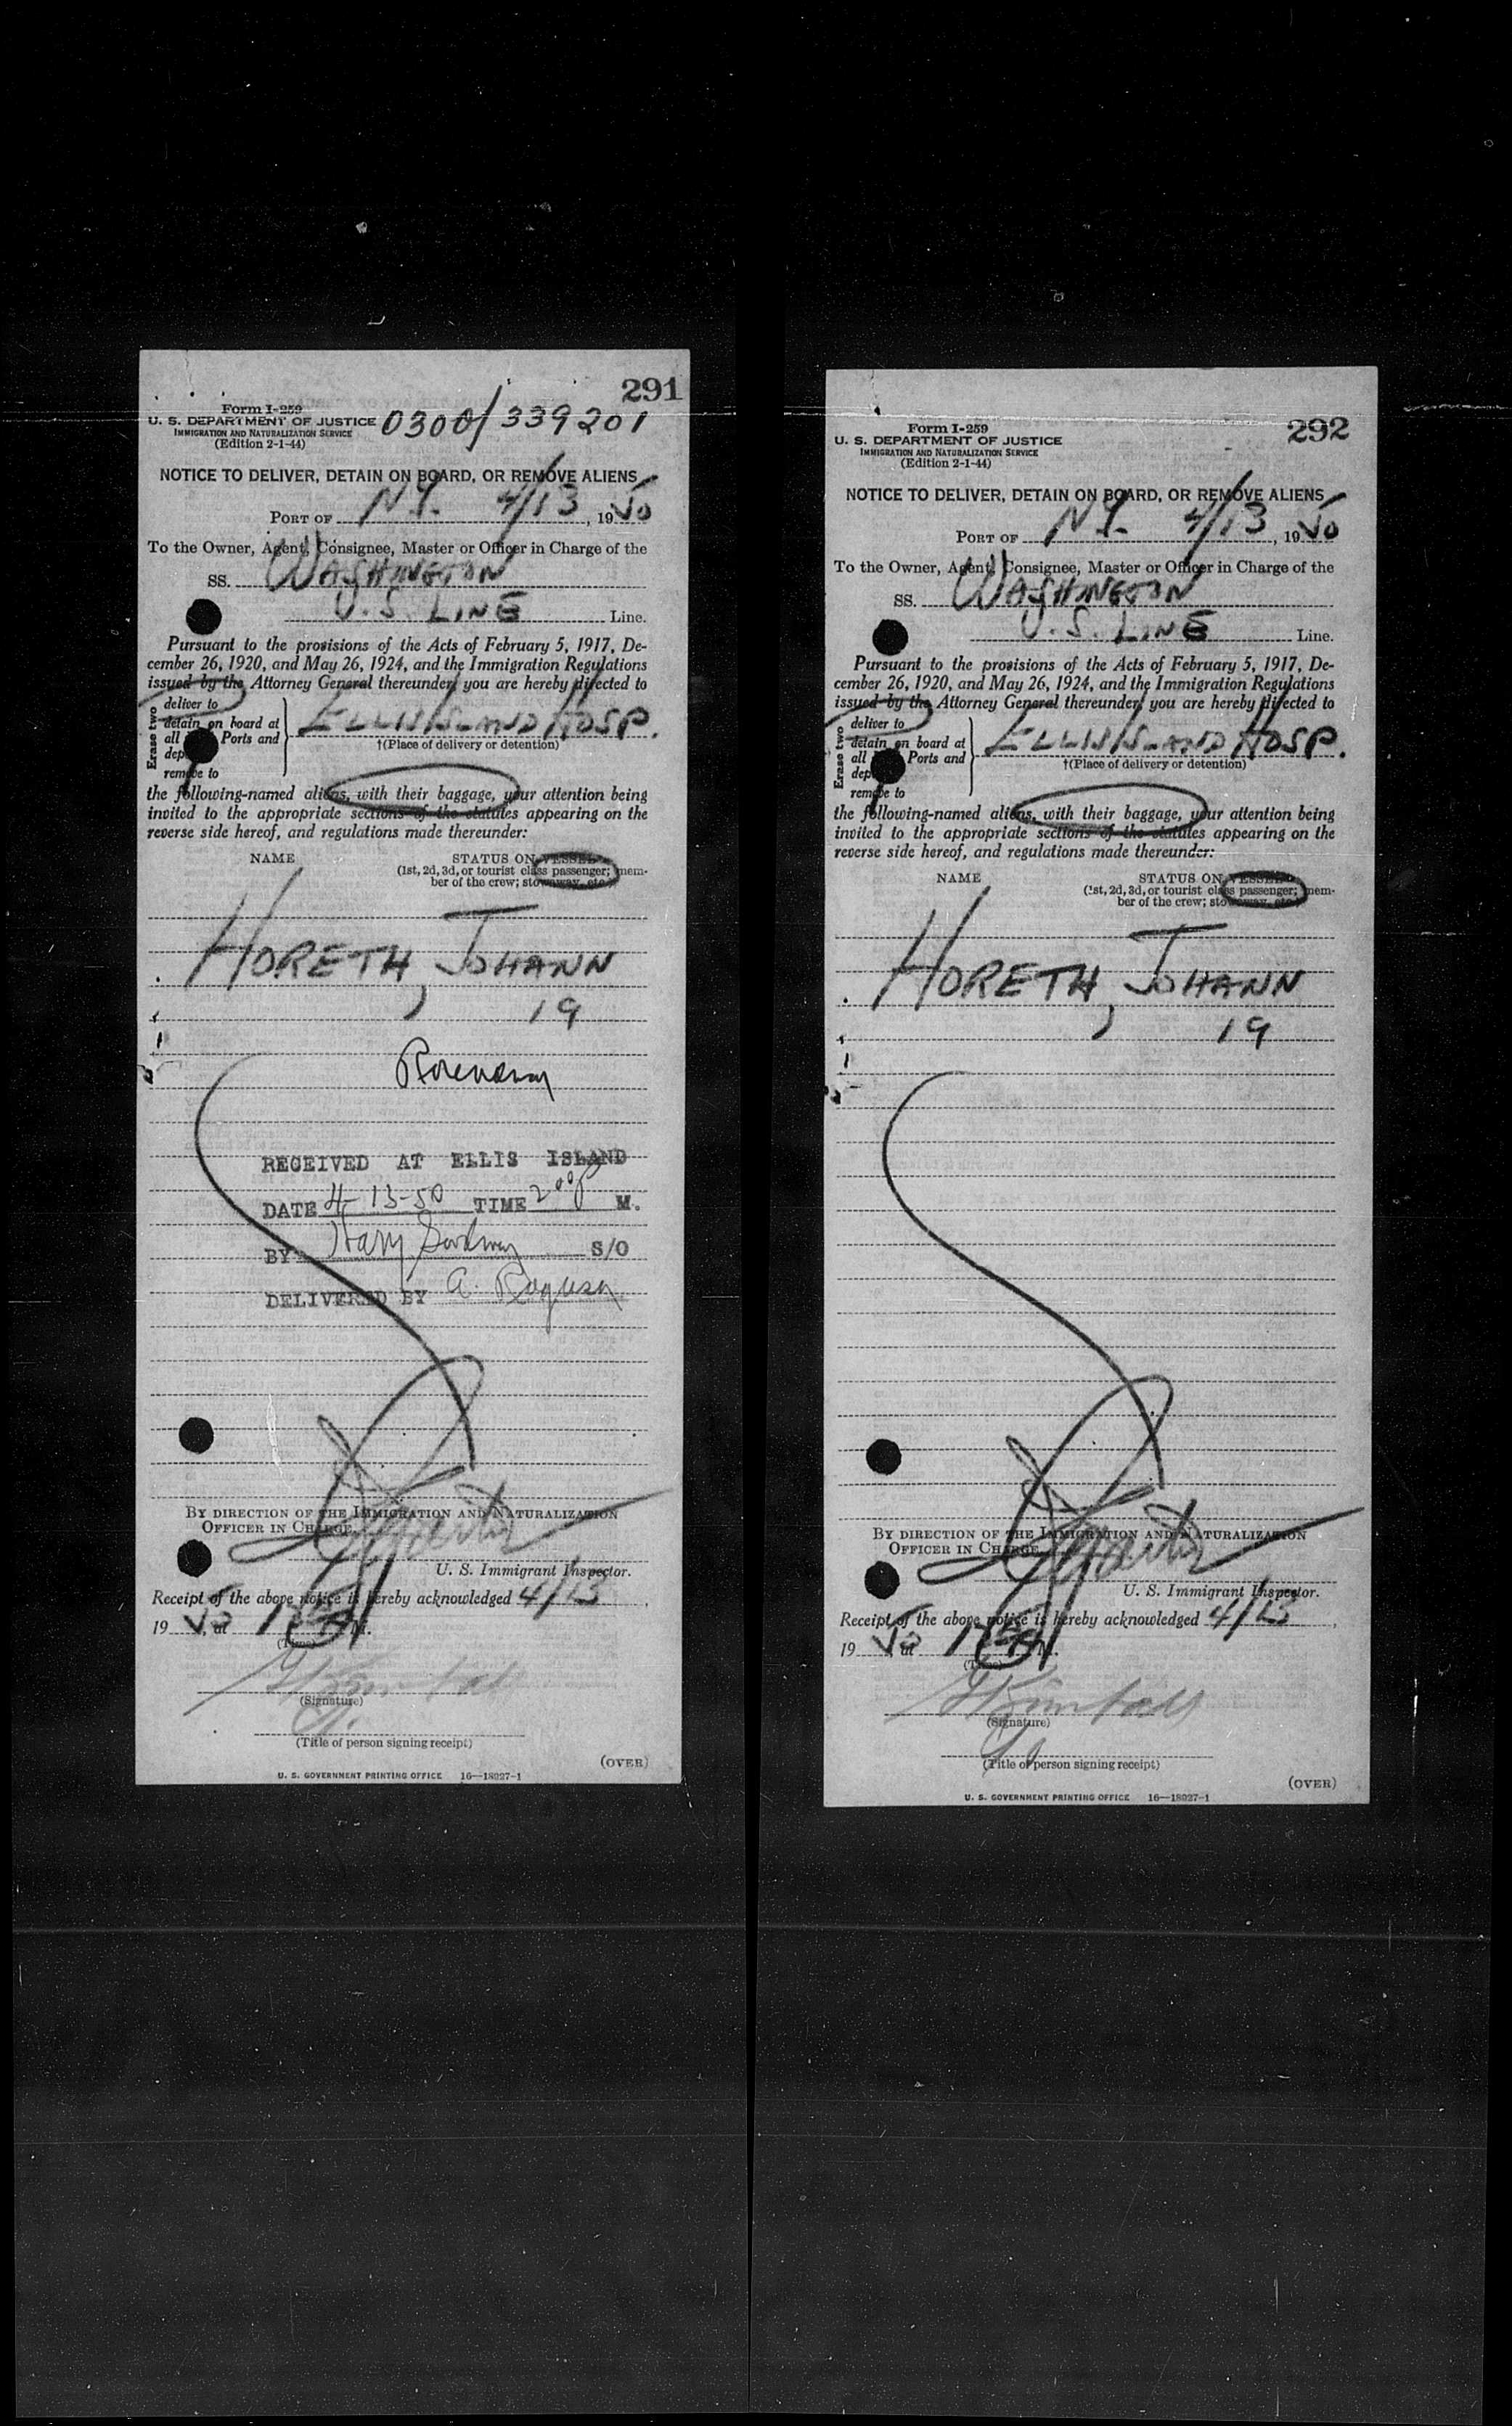 291
Form I-259
U. S. DEPARTMENT OF JUSTICE
0300/339201
IMMIGRATION AND NATURALIZATION SERVICE
(Edition 2-1-44)
NOTICE TO DELIVER, DETAIN ON BOARD, OR REMOVE ALIENS
PORT OF N.Y. 4/13, 1950
To the Owner, Agent, Consignee, Master or Officer in Charge of the
SS. WASHINGTON
U.S. LINE Line.
Pursuant to the provisions of the Acts of February 5, 1917, De-
cember 26, 1920, and May 26, 1924, and the Immigration Regulations
issued by the Attorney General thereunder, you are hereby directed to
Erase two
deliver to
detain on board at
all Ports and
remove to
ELLIS ISLAND HOSP.
†(Place of delivery or detention)
the following-named aliens, with their baggage, your attention being
invited to the appropriate sections of the statutes appearing on the
reverse side hereof, and regulations made thereunder:
NAME STATUS ON VESSEL
(1st, 2d, 3d, or tourist class passenger; mem-
ber of the crew; stowaway, etc.)
HORETH, JOHANN
19
RECEIVED AT ELLIS ISLAND
DATE 4-13-50 TIME 2 00 P M.
BY Harry S/O
DELIVERED BY A. Ragusa
BY DIRECTION OF THE IMMIGRATION AND NATURALIZATION
OFFICER IN CHARGE
U. S. Immigrant Inspector.
Receipt of the above notice is hereby acknowledged 4/13,
1950, at M.
(Time)
(Signature)
(Title of person signing receipt)
(OVER)
U. S. GOVERNMENT PRINTING OFFICE 16—18927-1
292
Form I-259
U. S. DEPARTMENT OF JUSTICE
IMMIGRATION AND NATURALIZATION SERVICE
(Edition 2-1-44)
NOTICE TO DELIVER, DETAIN ON BOARD, OR REMOVE ALIENS
PORT OF N.Y. 4/13, 1950
To the Owner, Agent, Consignee, Master or Officer in Charge of the
SS. WASHINGTON
U.S. LINE Line.
Pursuant to the provisions of the Acts of February 5, 1917, De-
cember 26, 1920, and May 26, 1924, and the Immigration Regulations
issued by the Attorney General thereunder, you are hereby directed to
Erase two
deliver to
detain on board at
all Ports and
remove to
ELLIS ISLAND HOSP.
†(Place of delivery or detention)
the following-named aliens, with their baggage, your attention being
invited to the appropriate sections of the statutes appearing on the
reverse side hereof, and regulations made thereunder:
NAME STATUS ON VESSEL
(1st, 2d, 3d, or tourist class passenger; mem-
ber of the crew; stowaway, etc.)
HORETH, JOHANN
19
BY DIRECTION OF THE IMMIGRATION AND NATURALIZATION
OFFICER IN CHARGE
U. S. Immigrant Inspector.
Receipt of the above notice is hereby acknowledged 4/13,
1950, at M.
(Time)
Kimball
(Signature)
(Title of person signing receipt)
(OVER)
U. S. GOVERNMENT PRINTING OFFICE 16—18927-1